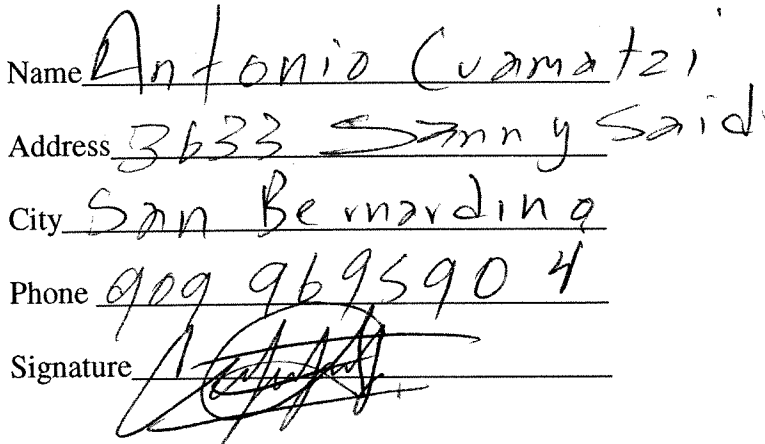 Name Antonio Cuamatzi
Address 3633 Sanny Said
City San Bernardino
Phone 909 9695904
Signature